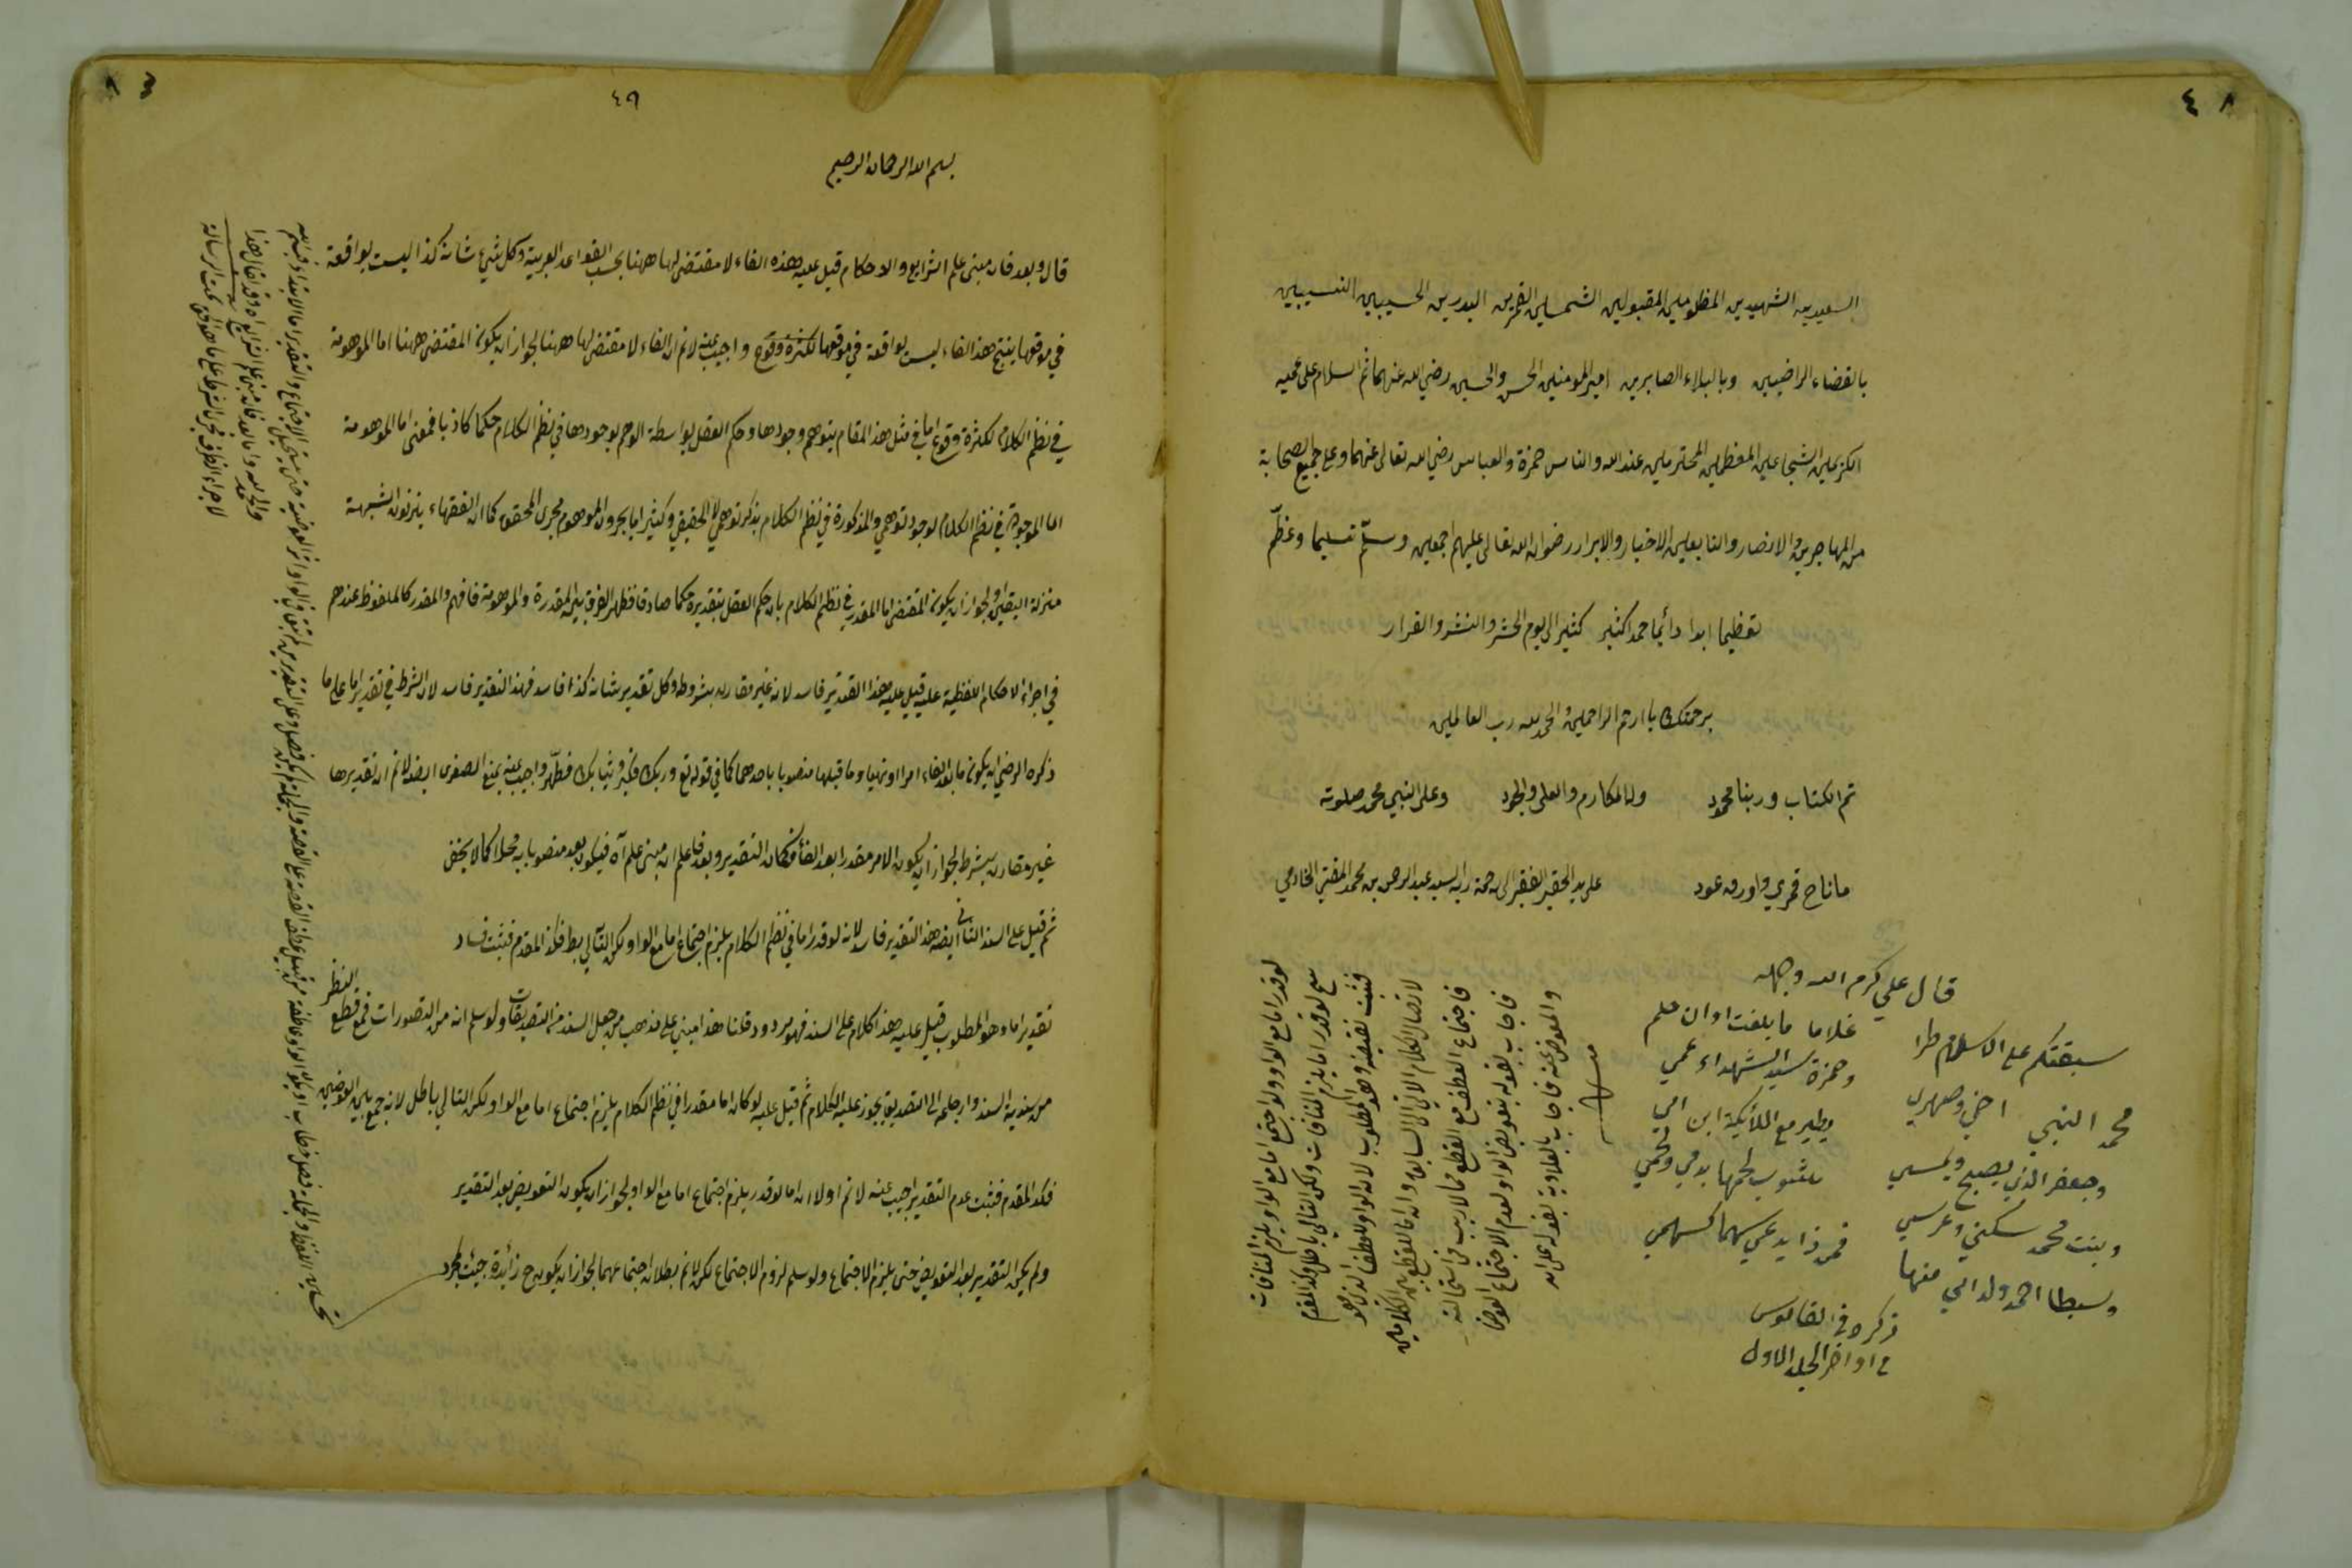 ٤٨
السعيدين الشهيدين المظلومين المقبولين الشمسين القمرين البدرين الحسيبين النسيبين
بالقضاء الراضيين وبالبلاء الصابرين اميرالمومنين الحسن والحسين رضي الله عنهما ثم السلام على عميه
الكريمين الشجاعين المعظمين المحترمين عند الله والناس حمزة والعباس رضي الله تعالى عنهما وعلى جميع الصحابة
من المهاجرين والانصار والتابعين الاخيار والابرار رضوان الله تعالى عليهم اجمعين وسلّم تسليما وعظّم
تعظيما ابدا دائما حمدا كثير كثير الى يوم الحشر والنشر والقرار
برحمتك يا ارحم الراحمين والحمد لله رب العالمين
تم الكتاب وربنا محمود وله المكارم والعلى والجود وعلى النبي محمد صلوته
ما ناح قمري واورق عود على يد الحقير الفقير الى رحمة ربه السيد عبد الرحمن بن محمد المفتي الخادمي
قال علي كرم الله وجهه
سبقتكم على الاسلام طرا غلاما ما بلغت اوان حلم
محمد النبي اخي وصهري وحمزة سيد الشهداء عمي
وجعفر الذي يصبح ويمسي يطير مع الملائكة ابن امي
وبنت محمد سكني وعرسي مشوب لحمها بدمي ولحمي
وسبطا احمد ولداي منها فمن ذا يدعي سهما كسهمي
ذكره في القاموس
في اواخر الجلد الاول
لو قدر اما مع الواو ولو اجتمع اما مع الواو يلزم المنافات
لو قدر اما يلزم المنافات ولكن التالي باطل وكذا المقدم
فثبت نقيضه وهو المطلوب لان الواو للعطف الذي هو
لاتصال الكلام الاتي الى السابق وان اما للقطع بين الكلامين
فاجتماع العطف مع القطع مما لا ريب في استحالته
فاجاب بقوله بتعويض الواو لعدم الاجتماع العوض
والمعوض عنه فاجاب بالعلاوة بقوله على ان
٤٩
بسم الله الرحمان الرحيم
قال وبعد فان مبنى علم الشرايع والاحكام قيل عليه هذه الفاء لا مقتضى لها ههنا بحسب القواعد العربية وكل شيء شانه كذا ليست بواقعة
في موقعها ينتج هذا الفاء ليست بواقعة في موقعها لكثرة وقوع واجيب عنه لانم ان الفاء لا مقتضى لها ههنا لجواز ان يكون المقتضى ههنا اما الموهومة
في نظم الكلام لكثرة وقوع اما في مثل هذا المقام يتوهم وجودها وحكم العقل بواسطة الوهم بوجودها في نظم الكلام حكما كاذبا فمعنى اما الموهومة
اما الموجودة في نظم الكلام لوجود توهمي والمذكورة في نظم الكلام بذكر توهمي لا الحقيقي وكثيرا ما يجرون الموهوم مجرى المحقق كما ان الفقهاء ينزلون الشبهة
منزلة اليقين ولجواز ان يكون المقتضى اما المقدر في نظم الكلام بان حكم العقل بتقديره حكما صادقا فظهر الفرق بين المقدرة والموهومة فافهم والمقدر كالملفوظ عندهم
في اجراء الاحكام اللفظية عليه قيل عليه هذا التقدير فاسد لانه غير مقارن بشروطه وكل تقدير شانه كذا فاسد فهذا التقدير فاسد لان الشرط في تقدير اما على ما
ذكره الرضي ان يكون ما بعد الفاء امرا او نهيا وما قبلها منصوبا باحدهما كما في قوله تع وربك فكبر وثيابك فطهّر واجيب عنه بمنع الصغرى ايضا لانم ان تقديرها
غير مقارن بشرط لجواز ان يكون الامر مقدرا بعد الفاء فكان التقدير وبعد فاعلم ان مبنى علم آه فيكون بعد منصوبا به محلا كما لا يخفى
ثم قيل على السند الثاني ايضا هذا التقدير فاسد لانه لو قدر اما في نظم الكلام يلزم اجتماع اما مع الواو لكن التالي بط فكذا المقدم فثبت فساد
تقدير اما وهو المطلوب قيل عليه هذا كلام على السند فهو مردود قلنا هذا مبني على مذهب من جعل السند من التصديقات ولو سلم انه من التصورات فمع قطع النظر
من سندية السند وارجاعه الى التصديق يجوز عليه الكلام ثم قيل عليه لو كان اما مقدرا في نظم الكلام يلزم اجتماع اما مع الواو لكن التالي باطل لانه جمع بين العوضين
فكذا المقدم فثبت عدم التقدير اجيب عنه لانم اولا ان اما لو قدر يلزم اجتماع اما مع الواو لجواز ان يكون التعويض بعد التقدير
ولم يكن التقدير بعد التعويض حتى يلزم الاجتماع ولو سلم لزوم الاجتماع لكن لانم بطلان اجتماعهما لجواز ان يكون ح زائدة جيئت لمجرد